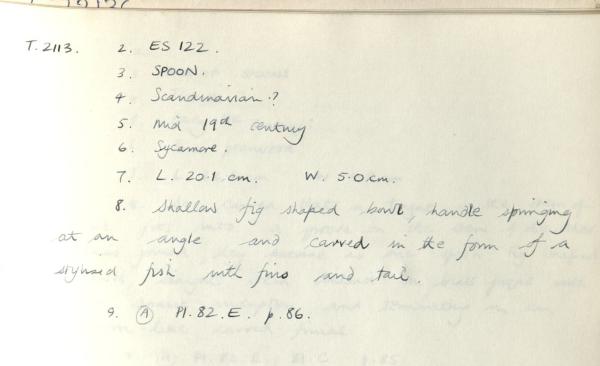 T. 2113. 2. ES 122.
3. SPOON.
4. Scandinavian.?
5. Mid 19th century
6. Sycamore.
7. L. 20.1 cm. W. 5.0 cm.
8. Shallow fig shaped bowl, handle springing
at an angle and carved in the form of a
stylised fish with fins and tail.
9. (A) Pl. 82. E. p. 86.